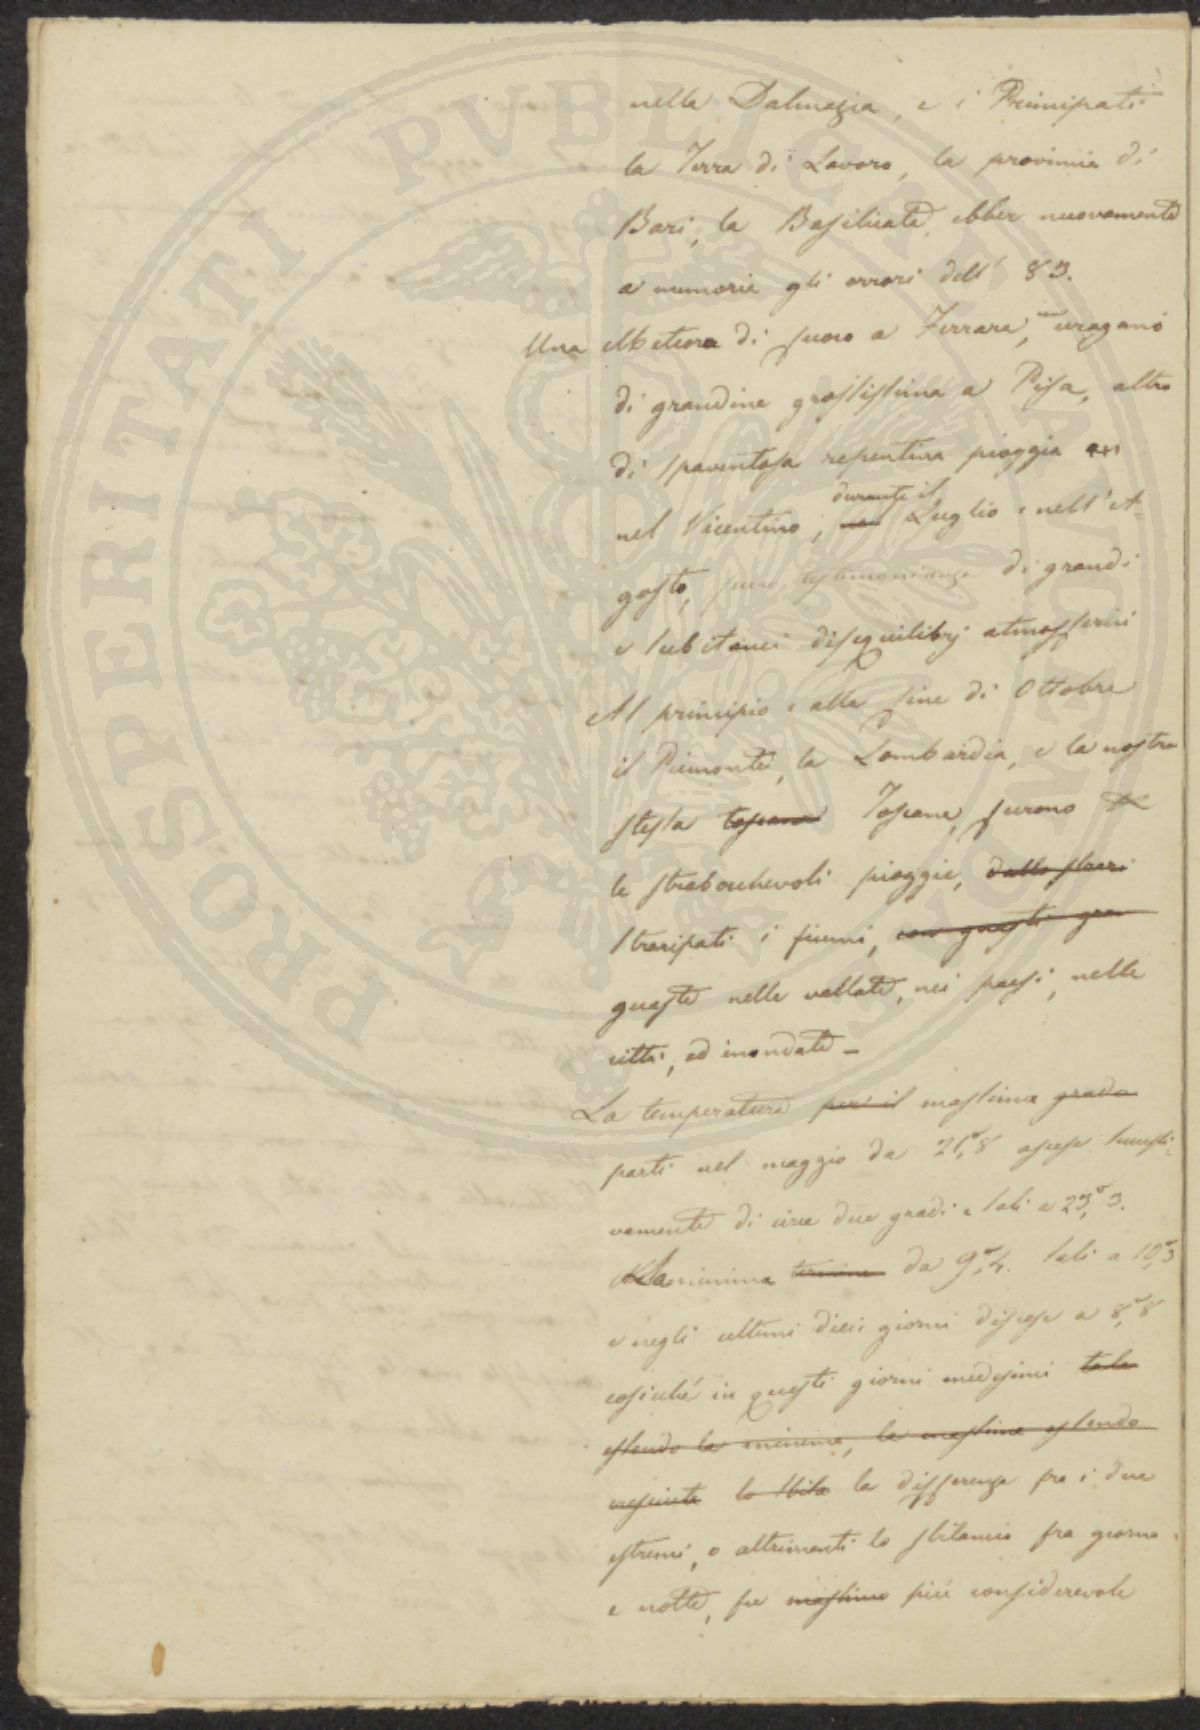 nella Dalmazia, e i Principati
la Terra di Lavoro, la provincia di
Bari, la Basilicata, ebber nuovamente
a memoria gli orrori dell' 83.
Una Meteora di fuoco a Ferrara, un uragano
di grandine grossissima a Pisa, altro
di spaventosa repentina pioggia
nel Vicentino, durante il Luglio e nell'A-
gosto, furon testimonianza di grandi
e subitanei disequilibrj atmosferici
Al principio e alla fine di Ottobre
il Piemonte, la Lombardia, e la nostra
stessa toscana Toscana, furono
le strabocchevoli pioggie, dallo
straripati i fiumi, con questi gra
queste nelle vallate, nei paesi, nelle
città, ed inondate -
La temperatura per il massima grado
partì nel maggio da 21°,8 ascese successi-
vamente di circa due gradi e salì a 23°,3.
La minima termine da 9°,4. salì a 10°,3
e negli ultimi dieci giorni discese a 8°,8
cosicché in questi giorni medesimi tale
essendo la minima, la massima essendo
cresciuta lo sbila la differenza fra i due
estremi, o altrimenti lo sbilancio fra giorno
e notte, fu massimo più considerevole
PROSPERITATI PVBLICAE AVGENDAE